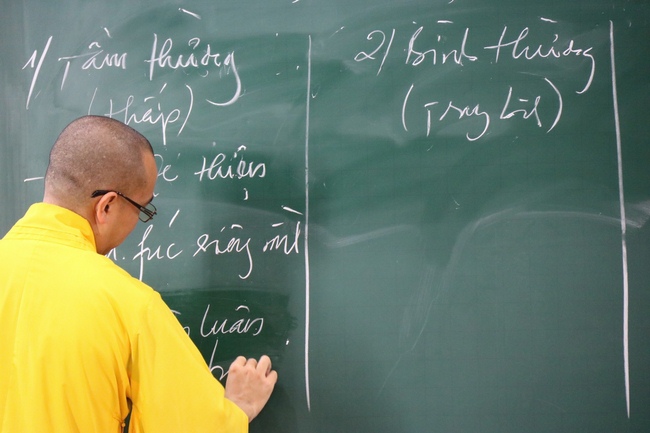 1/ Tầm thường
(thấp)
thiện
phúc riêng mình
luân
2/ Bình thường
(Trung bình)